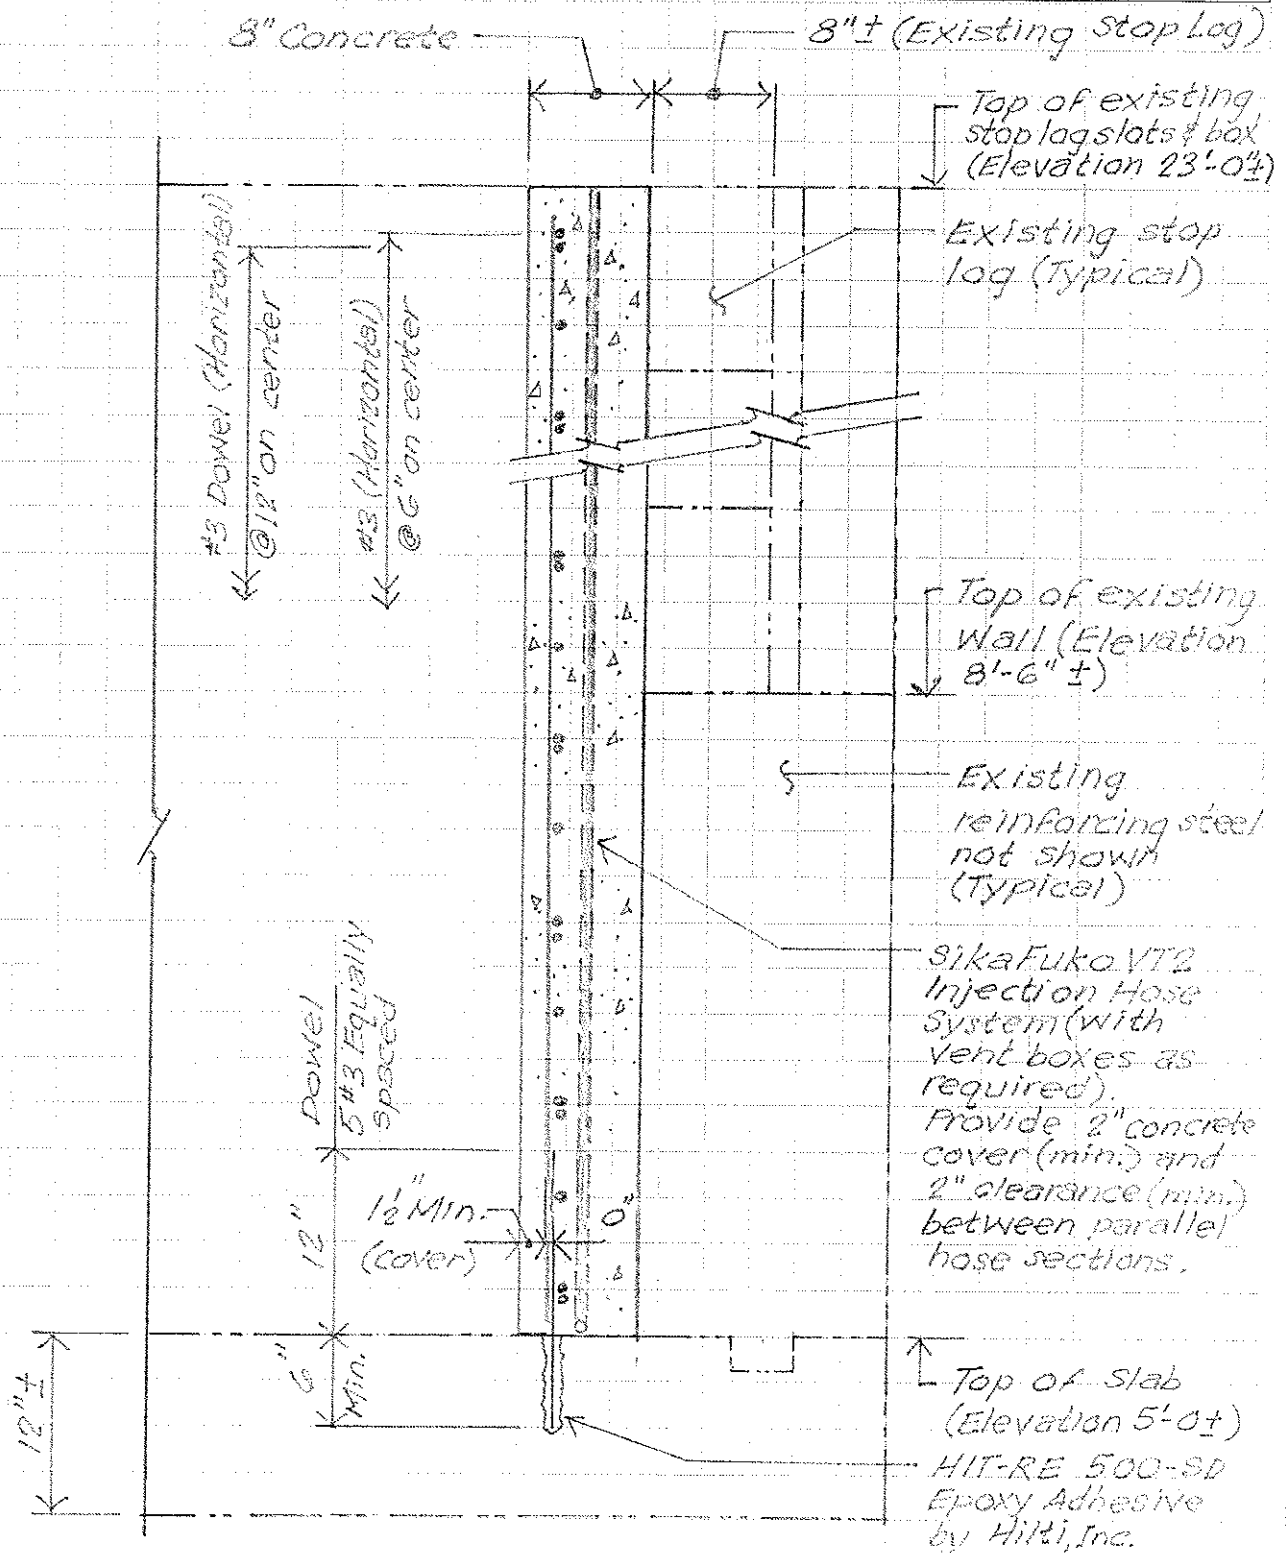 8" Concrete
8"± (Existing Stop Log)
Top of existing
stop log slots & box
(Elevation 23'-0"±)
Existing stop
log (Typical)
#3 Dowel (Horizontal)
@12" on center
#3 (Horizontal)
@ 6" on center
Top of existing
Wall (Elevation
8'-6" ±)
Existing
reinforcing steel
not shown
(Typical)
SikaFuko VT2
Injection Hose
System (with
vent boxes as
required).
Provide 2" concrete
cover (min.) and
2" clearance (min.)
between parallel
hose sections.
Dowel
5 #3 Equally
spaced
12"
1½" Min.
(cover)
0"
6"
Min.
12" ±
Top of Slab
(Elevation 5'-0±)
HIT-RE 500-SD
Epoxy Adhesive
by Hilti, Inc.